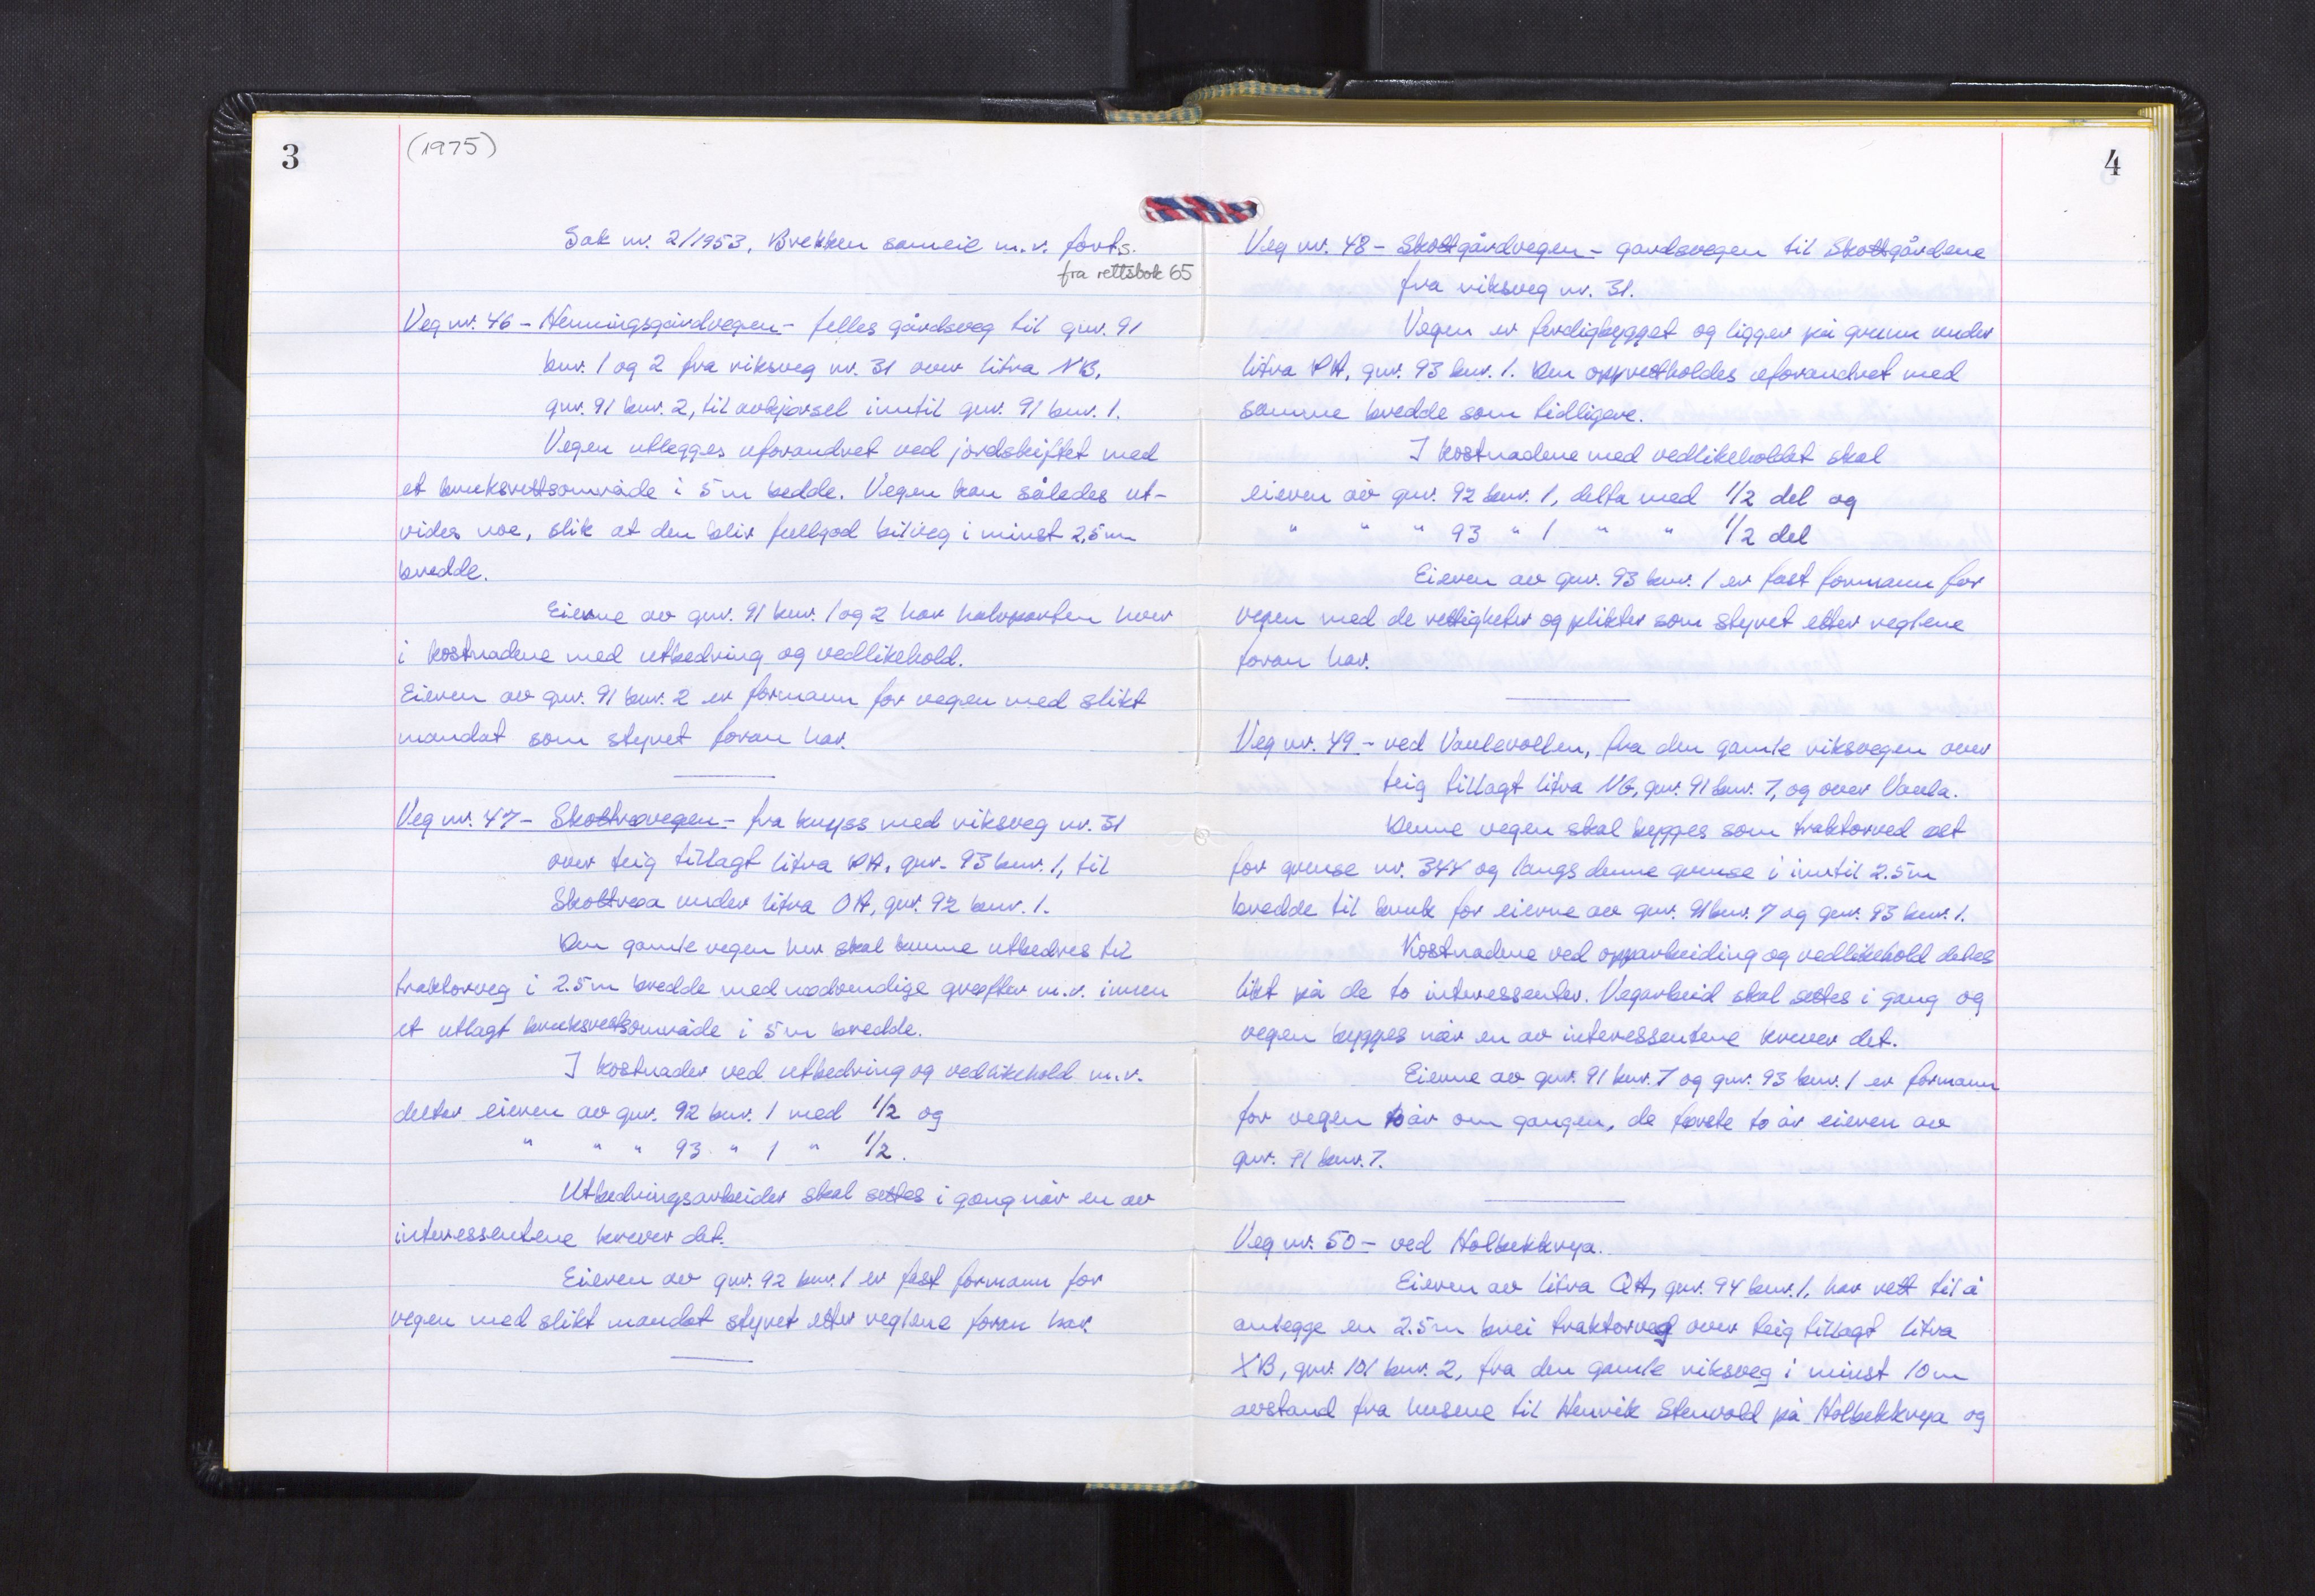 3
(1975)
Sak nr. 2/1953, Brekken sameie m.v. forts.
fra rettsbok 65
Veg nr. 46 - Henningsgårdvegen - felles gårdsveg til gnr. 91
bnr. 1 og 2 fra riksveg nr. 31 over litra NB,
gnr. 91 bnr. 2, til avkjørsel inntil gnr. 91 bnr. 1.
Vegen utlegges uforandret ved jordskiftet med
et bruksrettsområde i 5 m bedde. Vegen kan således ut-
vides noe, slik at den blir fullgod bilveg i minst 2,5 m
bredde.
Eierne av gnr. 91 bnr. 1 og 2 har halvparten hver
i kostnadene med utbedring og vedlikehold.
Eieren av gnr. 91 bnr. 2 er formann for vegen med slikt
mandat som styret foran har.
Veg nr. 47 - Skottrøvegen - fra kryss med riksveg nr. 31
over teig tillagt litra PA, gnr. 93 bnr. 1, til
Skottrøa under litra OA, gnr. 92 bnr. 1.
Den gamle vegen her skal kunne utbedres til
traktorveg i 2.5 m bredde med nødvendige grøfter m.v. innen
et utlagt bruksrettsområde i 5 m bredde.
I kostnader ved utbedring og vedlikehold m.v.
deltar eieren av gnr. 92 bnr. 1 med 1/2 og
" " " 93 " 1 " 1/2.
Utbedringsarbeider skal settes i gang når en av
interessentene krever det.
Eieren av gnr. 92 bnr. 1 er fast formann for
vegen med slikt mandat styret etter reglene foran har.
4
Veg nr. 48 - Skottgårdvegen - gardsvegen til Skottgårdene
fra riksveg nr. 31.
Vegen er ferdigbygget og ligger på grunn under
litra PA, gnr. 93 bnr. 1. Den opprettholdes uforandret med
samme bredde som tidligere.
I kostnadene med vedlikeholdet skal
eieren av gnr. 92 bnr. 1, delta med 1/2 del og
" " " 93 " 1 " " 1/2 del
Eieren av gnr. 93 bnr. 1 er fast formann for
vegen med de rettigheter og plikter som styret etter reglene
foran har.
Veg nr. 49 - ved Vaulavollen, fra den gamle riksvegen over
teig tillagt litra NG, gnr. 91 bnr. 7, og over Vaula.
Denne vegen skal bygges som traktorved øst
for grense nr. 344 og langs denne grense i inntil 2.5 m
bredde til bruk for eierne av gnr. 91 bnr. 7 og gnr. 93 bnr. 1.
Kostnadene ved opparbeiding og vedlikehold deles
likt på de to interessenter. Vegarbeid skal settes i gang og
vegen bygges når en av interessentene krever det.
Eierne av gnr. 91 bnr. 7 og gnr. 93 bnr. 1 er formann
for vegen to år om gangen, de første to år eieren av
gnr. 91 bnr. 7.
Veg nr. 50 - ved Holbekkrya.
Eieren av litra QA, gnr. 94 bnr. 1, har rett til å
anlegge en 2.5 m brei traktorveg over teig tillagt litra
XB, gnr. 101 bnr. 2, fra den gamle riksveg i minst 10 m
avstand fra husene til Henrik Stenvold på Holbekkrya og